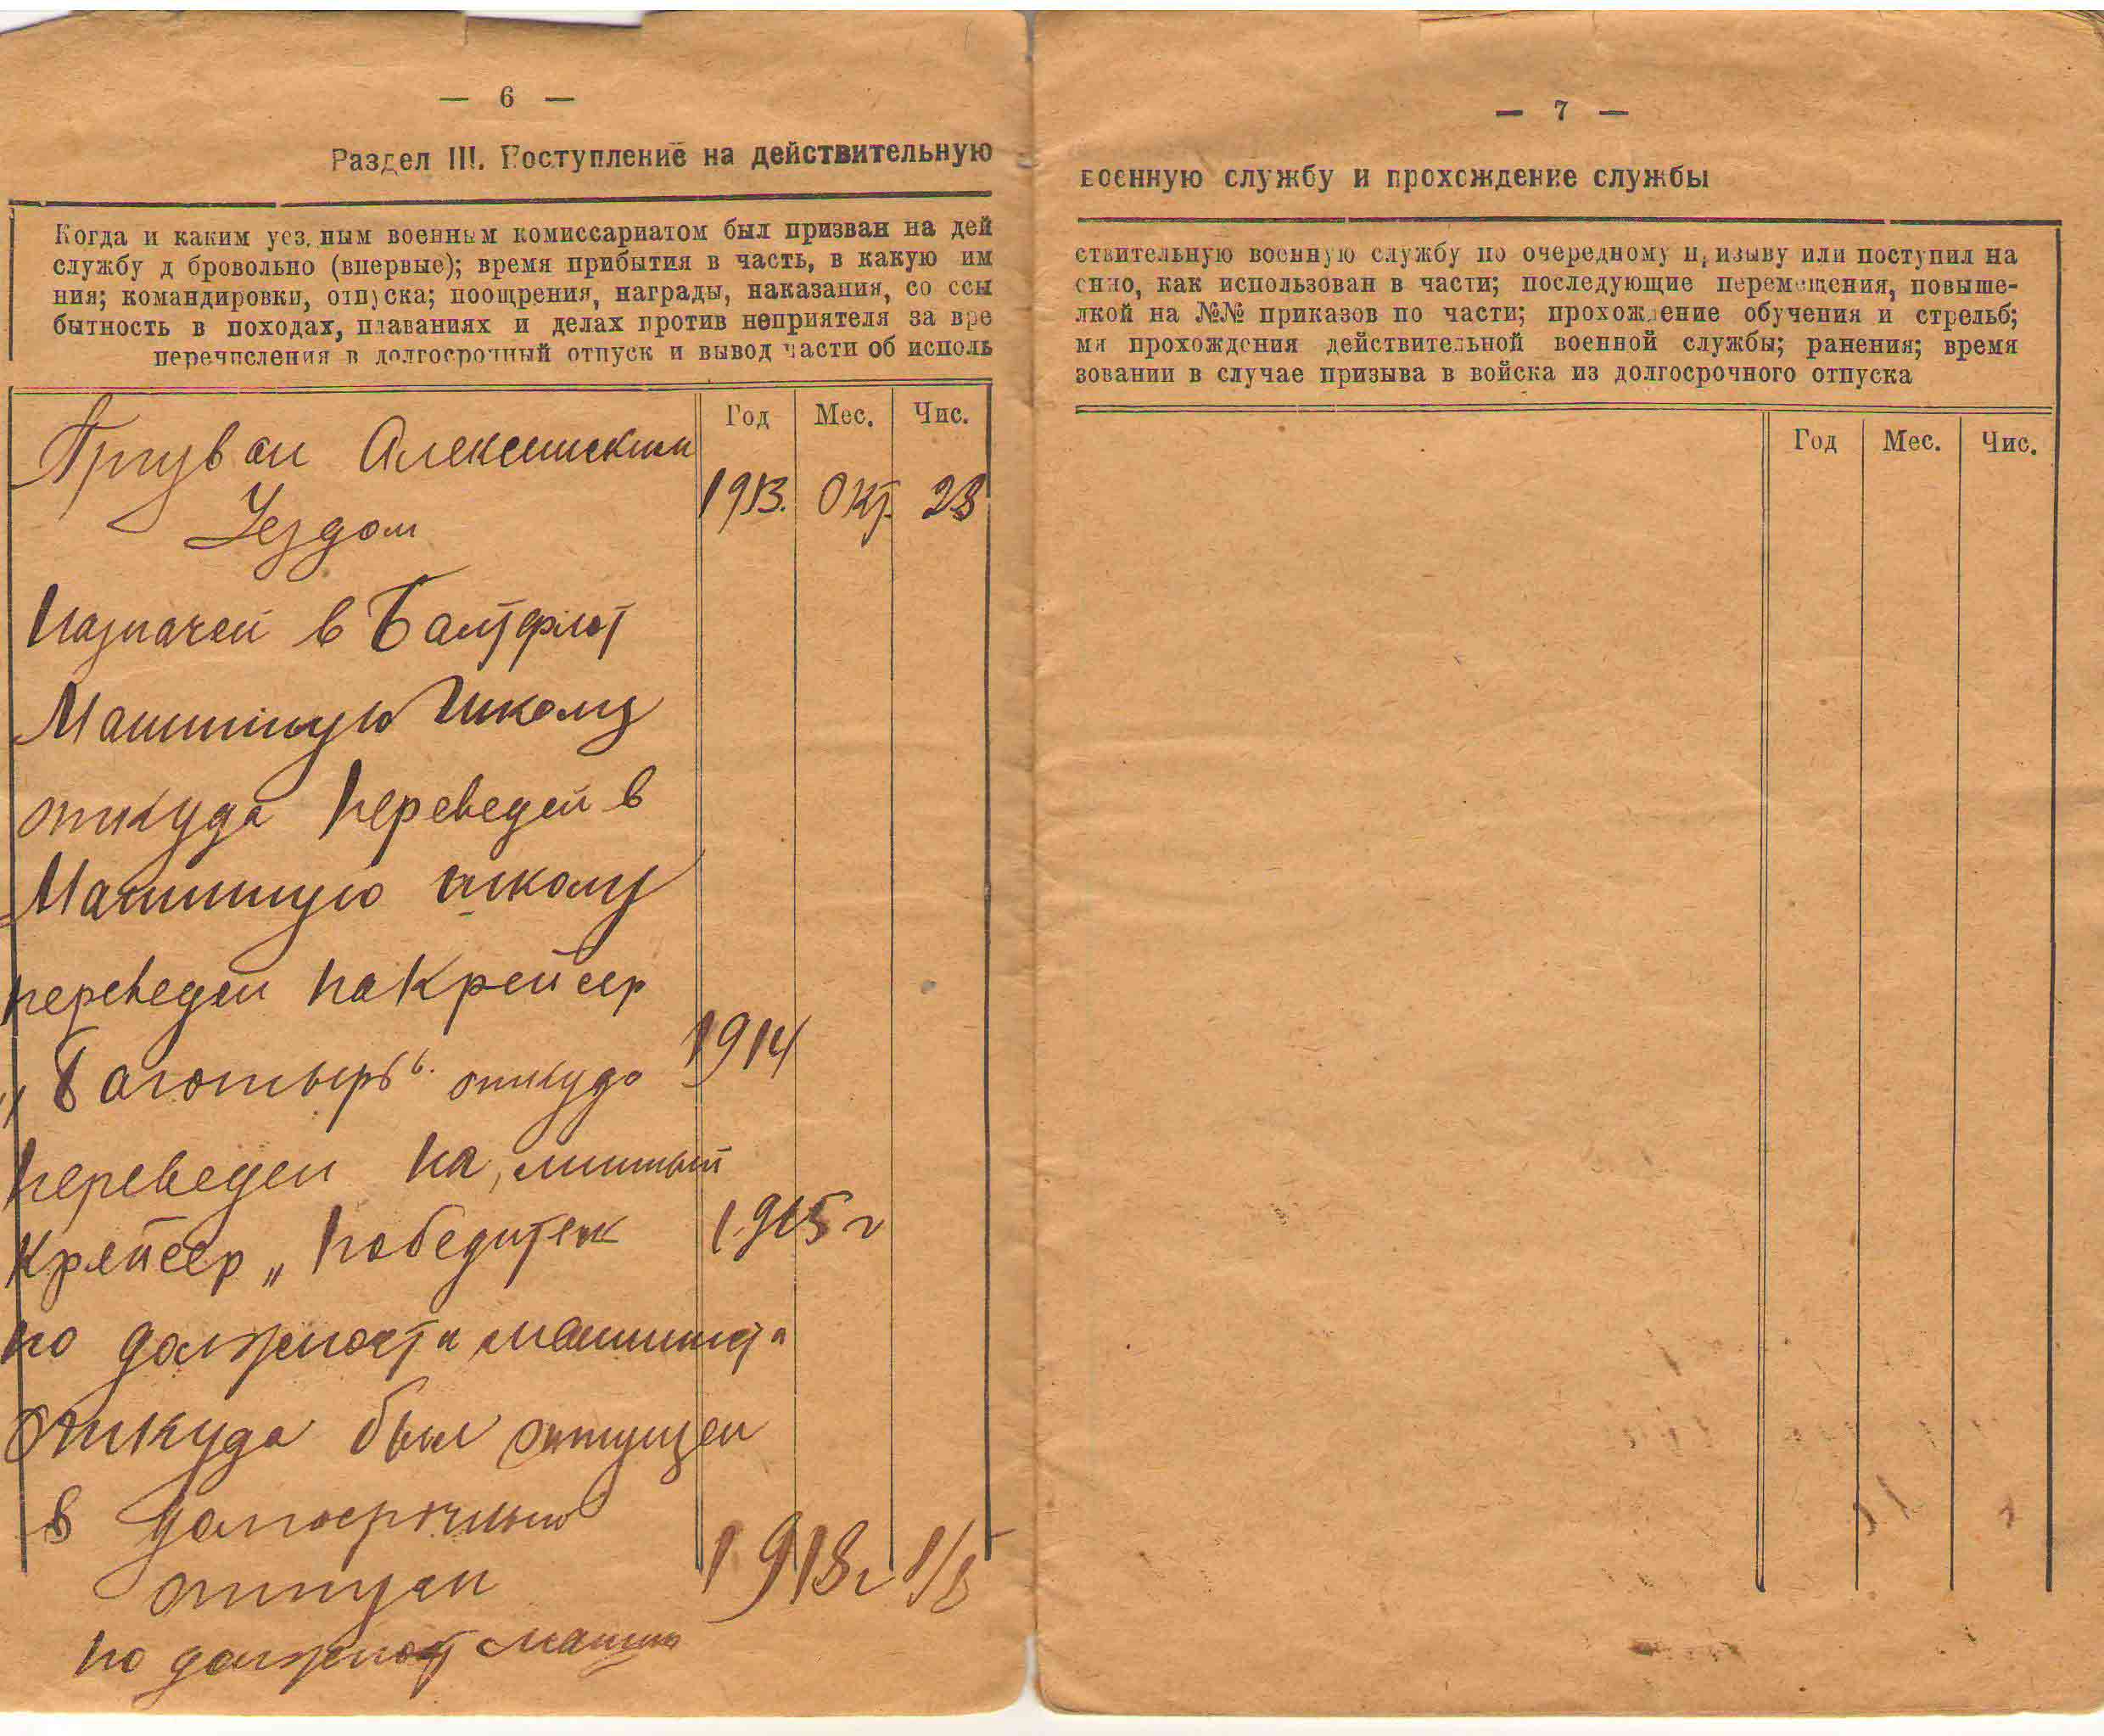 — 6 —
Раздел III. Поступление на действительную
Когда и каким уез.ным военным комиссариатом был призван на дей
службу д бровольно (впервые); время прибытия в часть, в какую им
ния; командировки, отпуска; поощрения, награды, наказания, со ссы
бытность в походах, плаваниях и делах против неприятеля за вре
перечисления в долгосрочный отпуск и вывод части об исполь
Год Мес. Чис.
Призван Алексинским
1913. Окт. 28
Уездом
Назначен в Балтфлот
Машинную Школу
откуда переведен в
Машинную школу
переведен на Крейсер
„Богатырь“. откуда 1914
переведен на минный
Крейсер „Победитель 1915 г
по должности машиниста
откуда был отпущен
в долгосрочный
отпуск 1918 г
по должност машин
— 7 —
военную службу и прохождение службы
ствительную военную службу по очередному призыву или поступил на
енно, как использован в части; последующие перемещения, повыше-
лкой на №№ приказов по части; прохождение обучения и стрельб;
мя прохождения действительной военной службы; ранения; время
зовании в случае призыва в войска из долгосрочного отпуска
Год Мес. Чис.